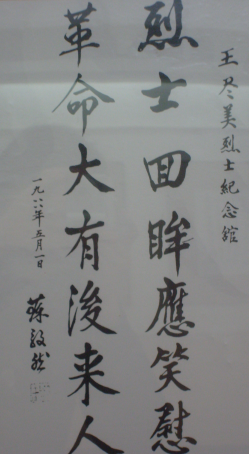 王尽美烈士紀念館
烈士回眸應笑慰
革命大有後来人
一九八六年五月一日
蘇毅然